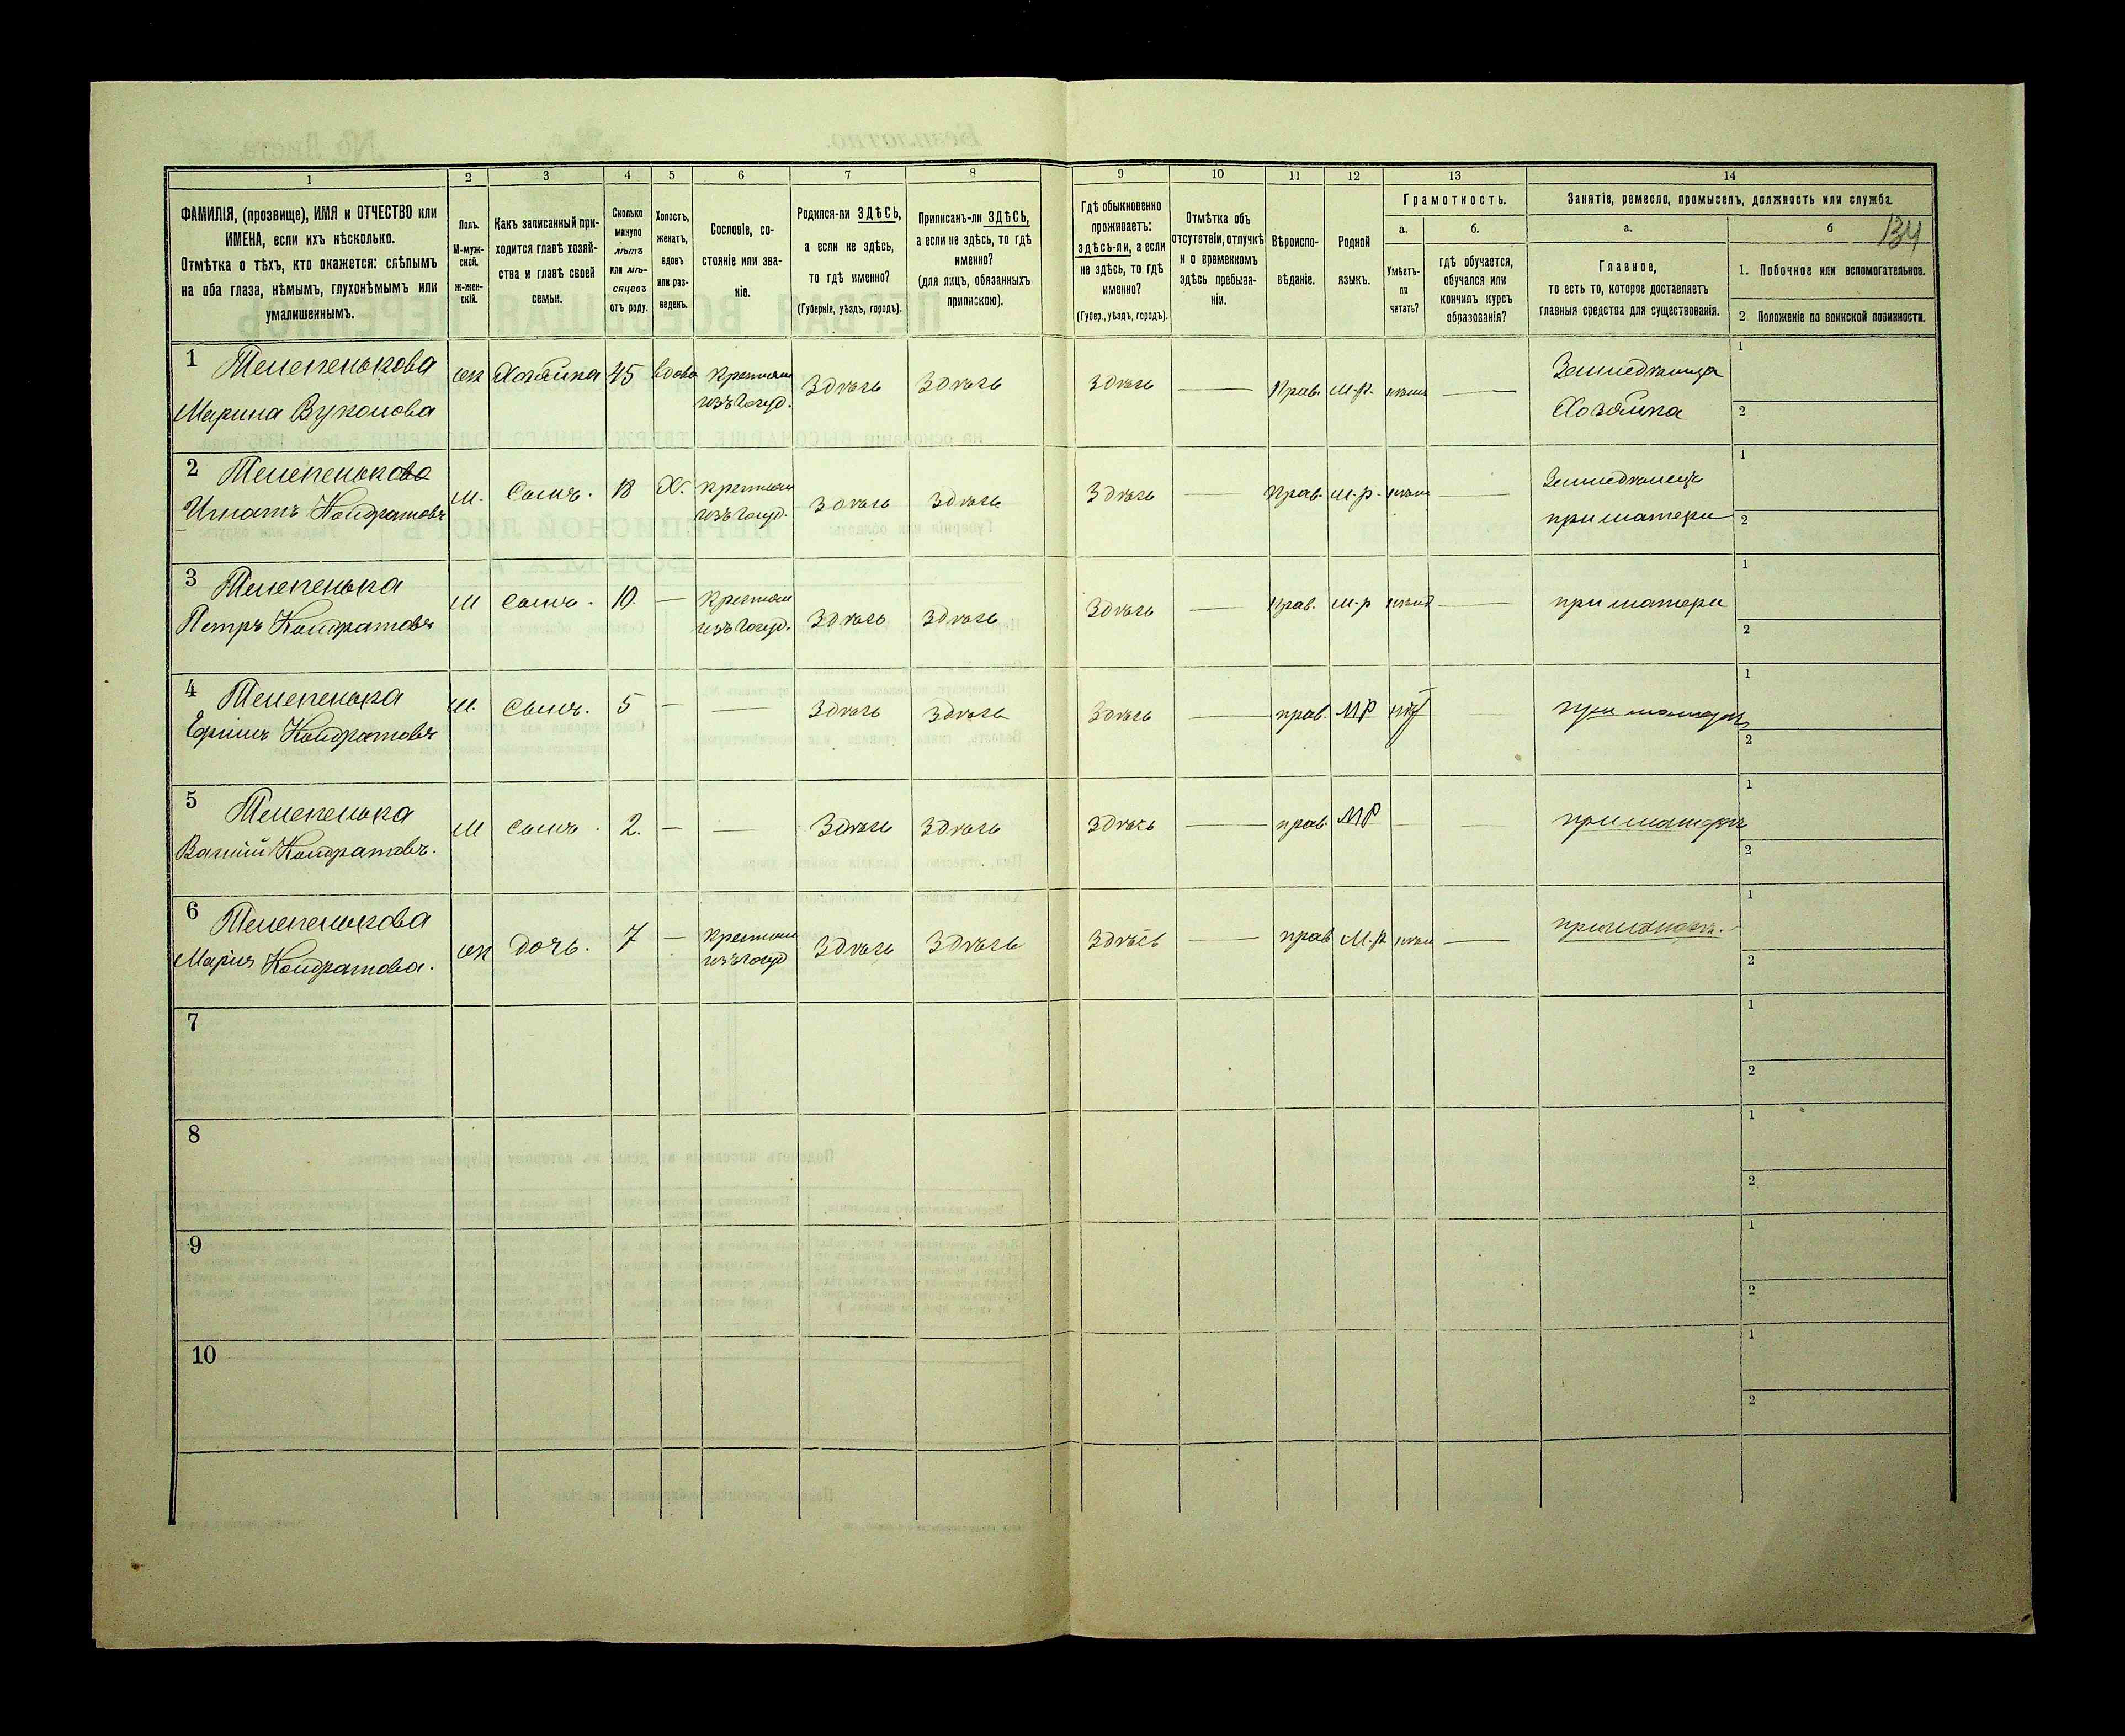 1 2 3 4 5 6 7 8 9 10 11 12 13 14
ФАМИЛІЯ, (прозвище), ИМЯ и ОТЧЕСТВО или
ИМЕНА, если ихъ нѣсколько.
Отмѣтка о тѣхъ, кто окажется: слѣпымъ
на оба глаза, нѣмымъ, глухонѣмымъ или
умалишеннымъ.
Полъ.
М-муж-
ской.
ж-жен-
скій.
Какъ записанный при-
ходится главѣ хозяй-
ства и главѣ своей
семьи.
Сколько
минуло
лѣтъ
или мѣ-
сяцевъ
отъ роду.
Холостъ,
женатъ,
вдовъ
или раз-
веденъ.
Сословіе, со-
стояніе или зва-
ніе.
Родился-ли ЗДѢСЬ,
а если не здѣсь,
то гдѣ именно?
(Губернія, уѣздъ, городъ).
Приписанъ-ли ЗДѢСЬ,
а если не здѣсь, то гдѣ
именно?
(для лицъ, обязанныхъ
припискою).
Гдѣ обыкновенно
проживаетъ:
здѣсь-ли, а если
не здѣсь, то гдѣ
именно?
(Губер., уѣздъ, городъ).
Отмѣтка объ
отсутствіи, отлучкѣ
и о временномъ
здѣсь пребыва-
ніи.
Вѣроиспо-
вѣданіе.
Родной
языкъ.
Грамотность.
а.
Умѣетъ-
ли
читать?
б.
гдѣ обучается,
обучался или
кончилъ курсъ
образованія?
Занятіе, ремесло, промыселъ, должность или служба.
а.
Главное,
то есть то, которое доставляетъ
главныя средства для существованія.
б
134
1. Побочное или вспомогательное.
2 Положеніе по воинской повинности.
1 Телепенькова
Марина Вуколова
жен Хозяйка 45 вдова Крестьян
изъ госуд. Здѣсь Здѣсь Здѣсь — Прав. М-р. —
Земледѣлица
Хозяйка
1
2
2 Телепенькова
Игнатъ Кондратовъ
М. Сынъ. 18 Х. Крестьян
изъ госуд. Здѣсь Здѣсь Здѣсь — Прав. М-р. —
Земледѣлецъ
при матери
1
2
3 Телепенька
Петръ Кондратовъ
М Сынъ. 10. — Крестьян
изъ госуд. Здѣсь Здѣсь Здѣсь — Прав. М-р —
при матери
1
2
4 Телепенька
Ефимъ Кондратовъ
М. Сынъ. 5 — — Здѣсь Здѣсь Здѣсь — прав. МР —
при матери
1
2
5 Телепенька
Кондратовъ.
М Сынъ. 2. — — Здѣсь Здѣсь Здѣсь — прав. МР — —
при матери
1
2
6 Телепенькова
Марія Кондратова.
жен Дочь. 7 — Крестьян
изъ госуд Здѣсь Здѣсь Здѣсь — прав М-р —
при матери.
1
2
7
1
2
8
1
2
9
1
2
10
1
2